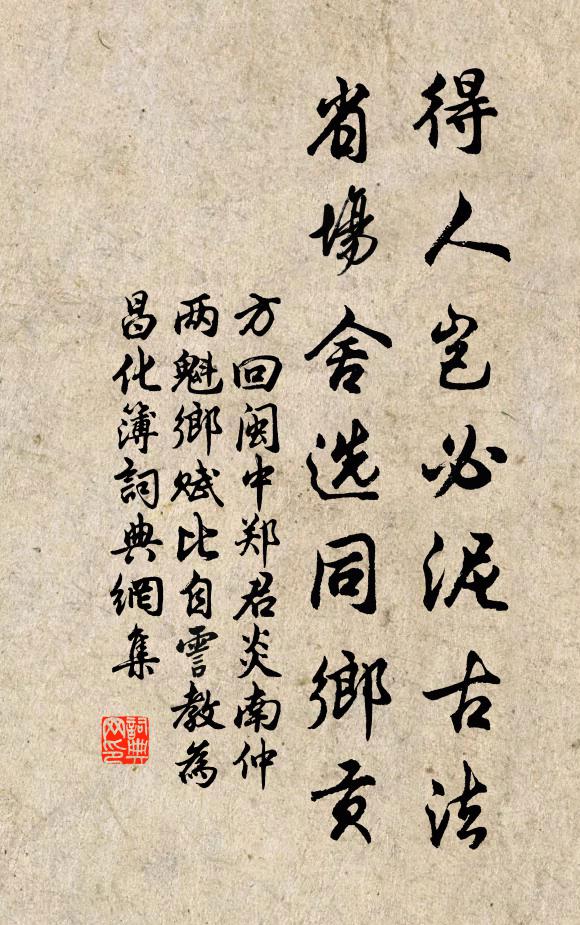 得人岂必泥古法
省场舍选同乡贡
方回闽中郑君炎南仲
两魁乡赋比自霅教为
昌化簿詞典網集
詞典
网印